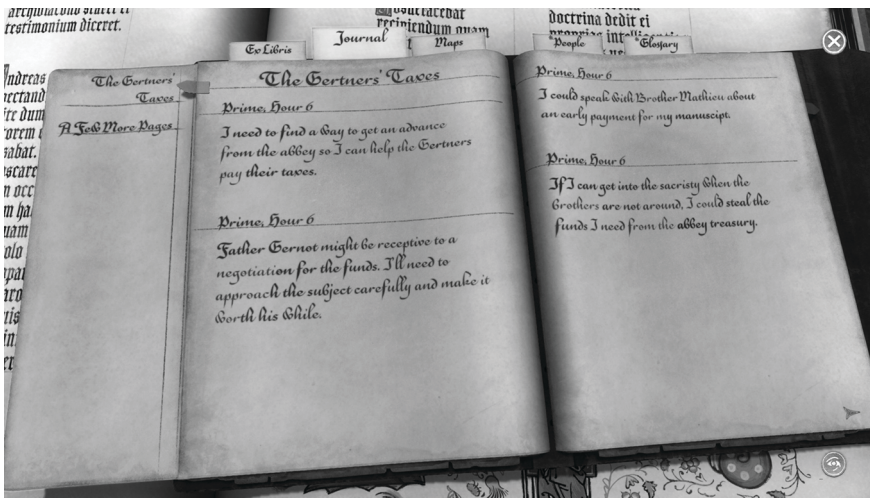 testimonium diceret.
recipiendum quam
doctrina dedit ei
Ex Libris
Journal
Maps
People
Glossary
The Gertners'
Taxes
A Few More Pages
The Gertners' Taxes
Prime, Hour 6
I need to find a way to get an advance
from the abbey so I can help the Gertners
pay their taxes.
Prime, Hour 6
Father Gernot might be receptive to a
negotiation for the funds. I'll need to
approach the subject carefully and make it
worth his while.
Prime, Hour 6
I could speak with Brother Mathieu about
an early payment for my manuscript.
Prime, Hour 6
If I can get into the sacristy when the
brothers are not around, I could steal the
funds I need from the abbey treasury.